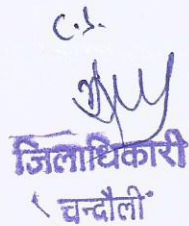 C.S.
जिलाधिकारी
चन्दौली